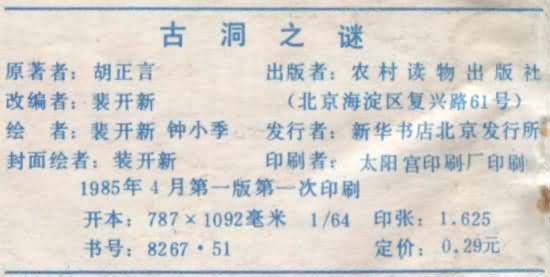 古洞之谜
原著者：胡正言 出版者：农村读物出版社
改编者：裴开新 （北京海淀区复兴路61号）
绘 者：裴开新 钟小季 发行者：新华书店北京发行所
封面绘者：裴开新 印刷者：太阳宫印刷厂印刷
1985年4月第一版第一次印刷
开本：787×1092毫米 1/64 印张：1.625
书号：8267·51 定价：0.29元